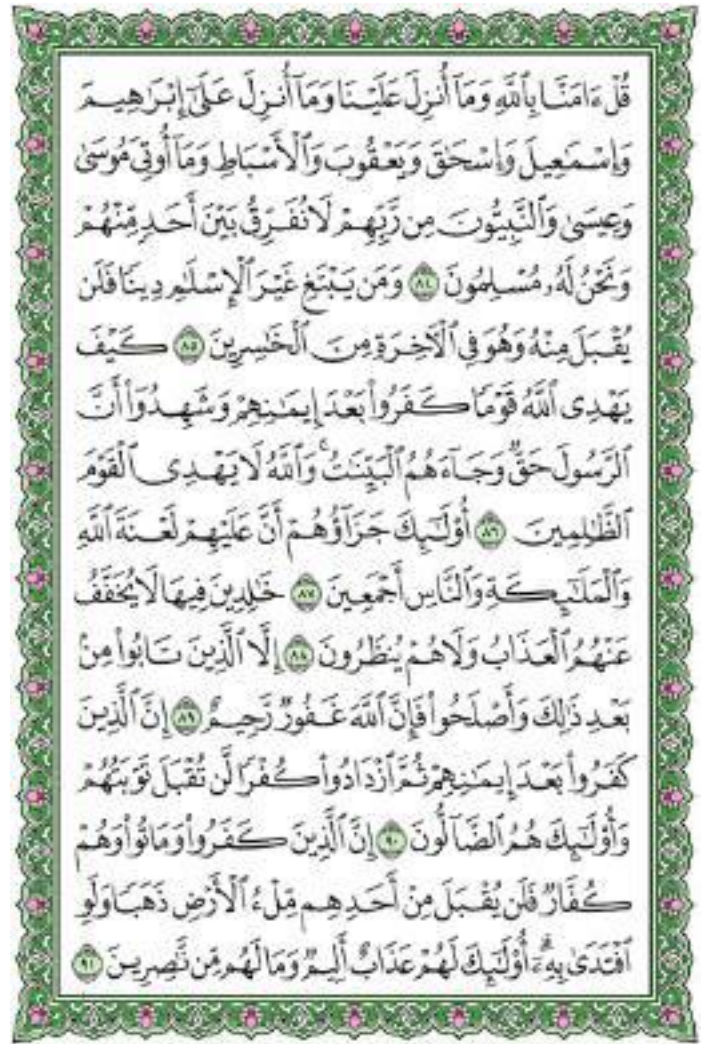 قُلْ ءَامَنَّا بِٱللَّهِ وَمَآ أُنزِلَ عَلَيْنَا وَمَآ أُنزِلَ عَلَىٰٓ إِبْرَٰهِيمَ
وَإِسْمَٰعِيلَ وَإِسْحَٰقَ وَيَعْقُوبَ وَٱلْأَسْبَاطِ وَمَآ أُوتِىَ مُوسَىٰ
وَعِيسَىٰ وَٱلنَّبِيُّونَ مِن رَّبِّهِمْ لَا نُفَرِّقُ بَيْنَ أَحَدٍ مِّنْهُمْ
وَنَحْنُ لَهُۥ مُسْلِمُونَ ٨٤ وَمَن يَبْتَغِ غَيْرَ ٱلْإِسْلَٰمِ دِينًا فَلَن
يُقْبَلَ مِنْهُ وَهُوَ فِى ٱلْءَاخِرَةِ مِنَ ٱلْخَٰسِرِينَ ٨٥ كَيْفَ
يَهْدِى ٱللَّهُ قَوْمًا كَفَرُوا۟ بَعْدَ إِيمَٰنِهِمْ وَشَهِدُوٓا۟ أَنَّ
ٱلرَّسُولَ حَقٌّ وَجَآءَهُمُ ٱلْبَيِّنَٰتُ ۚ وَٱللَّهُ لَا يَهْدِى ٱلْقَوْمَ
ٱلظَّٰلِمِينَ ٨٦ أُو۟لَٰٓئِكَ جَزَآؤُهُمْ أَنَّ عَلَيْهِمْ لَعْنَةَ ٱللَّهِ
وَٱلْمَلَٰٓئِكَةِ وَٱلنَّاسِ أَجْمَعِينَ ٨٧ خَٰلِدِينَ فِيهَا لَا يُخَفَّفُ
عَنْهُمُ ٱلْعَذَابُ وَلَا هُمْ يُنظَرُونَ ٨٨ إِلَّا ٱلَّذِينَ تَابُوا۟ مِنۢ
بَعْدِ ذَٰلِكَ وَأَصْلَحُوا۟ فَإِنَّ ٱللَّهَ غَفُورٌ رَّحِيمٌ ٨٩ إِنَّ ٱلَّذِينَ
كَفَرُوا۟ بَعْدَ إِيمَٰنِهِمْ ثُمَّ ٱزْدَادُوا۟ كُفْرًا لَّن تُقْبَلَ تَوْبَتُهُمْ
وَأُو۟لَٰٓئِكَ هُمُ ٱلضَّآلُّونَ ٩٠ إِنَّ ٱلَّذِينَ كَفَرُوا۟ وَمَاتُوا۟ وَهُمْ
كُفَّارٌ فَلَن يُقْبَلَ مِنْ أَحَدِهِم مِّلْءُ ٱلْأَرْضِ ذَهَبًا وَلَوِ
ٱفْتَدَىٰ بِهِۦٓ ۗ أُو۟لَٰٓئِكَ لَهُمْ عَذَابٌ أَلِيمٌ وَمَا لَهُم مِّن نَّٰصِرِينَ ٩١